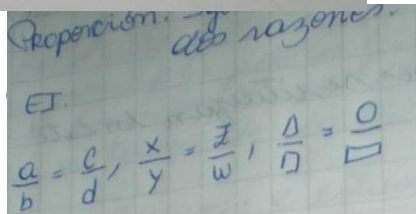 Proporción:
dos razones.
EJ:
a/b = c/d, x/y = z/w, △/□ = ○/▭